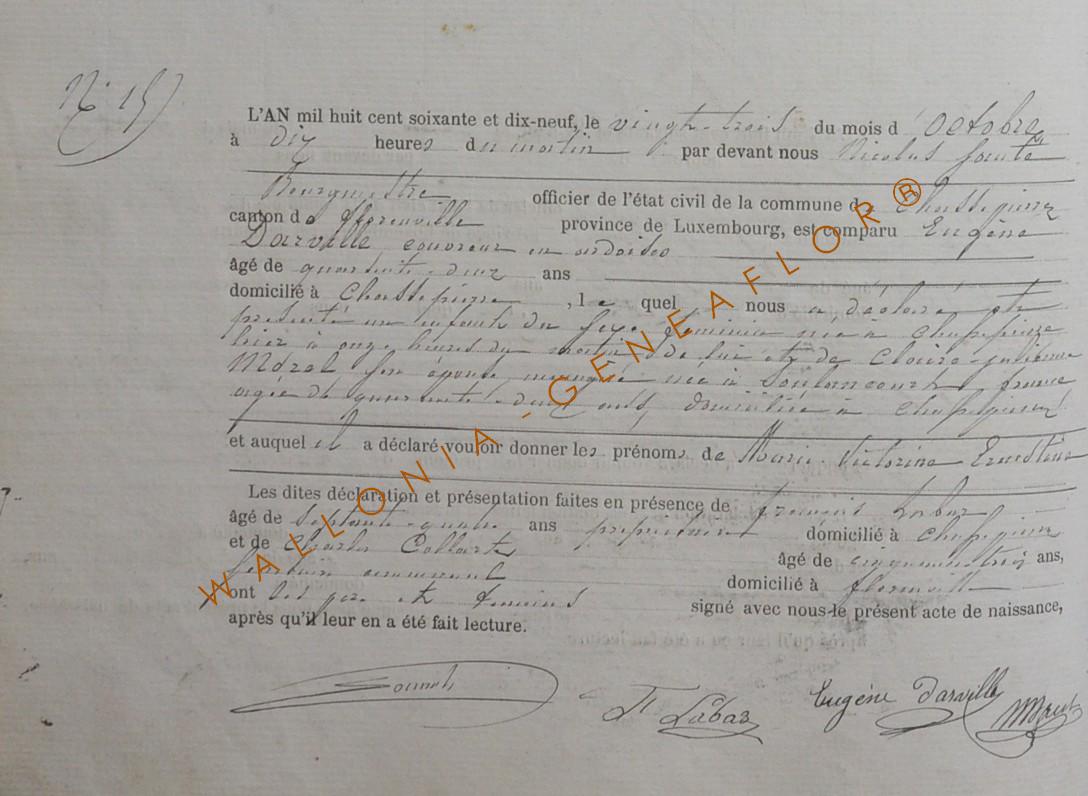 N° 15
L'AN mil huit cent soixante et dix-neuf, le vingt-trois du mois d'Octobre
à dix heures du matin par devant nous Nicolas
Bourgmestre officier de l'état civil de la commune de Chassepierre
canton de Florenville province de Luxembourg, est comparu Eugène
Darville couvreur en ardoises
âgé de quarante-deux ans
domicilié à Chassepierre, lequel nous a déclaré et
présenté un enfant du sexe féminin née à Chassepierre
hier à onze heures du matin de lui et de Claire Julienne
son épouse née à France
agée de quarante-deux ans, domiciliée à Chassepierre
et auquel il a déclaré vouloir donner les prénoms de Marie Victorine Ernestine
Les dites déclaration et présentation faites en présence de François Labar
âgé de septante-quatre ans domicilié à Chassepierre
et de Charles âgé de ans,
communal domicilié à Florenville
ont les père et témoins signé avec nous le présent acte de naissance,
après qu'il leur en a été fait lecture.
Fr Labar Eugène Darville
WALLONIA-GENEAFLOR®